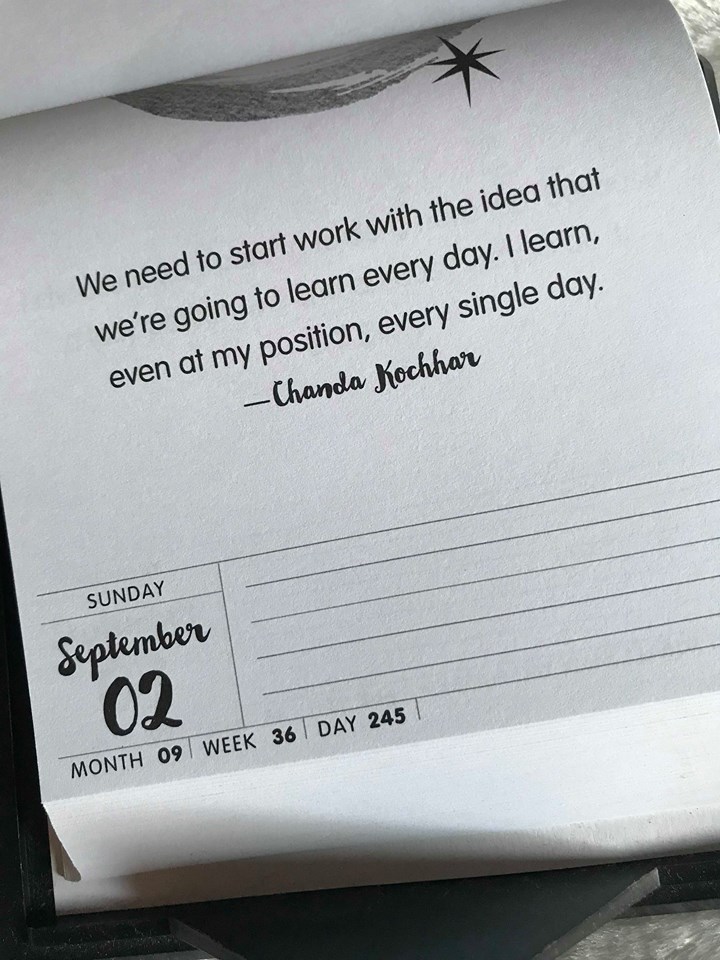 We need to start work with the idea that
we're going to learn every day. I learn,
even at my position, every single day.
—Chanda Kochhar
SUNDAY
September
02
MONTH 09 WEEK 36 DAY 245